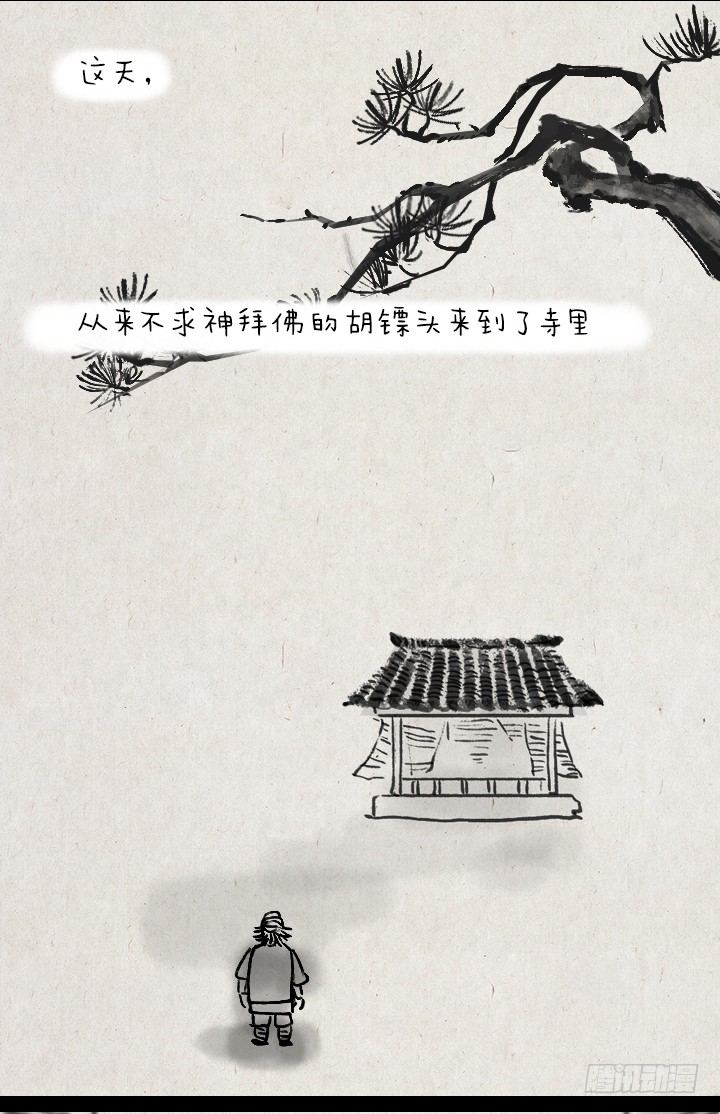 这天，
从来不求神拜佛的胡镖头来到了寺里
腾讯动漫